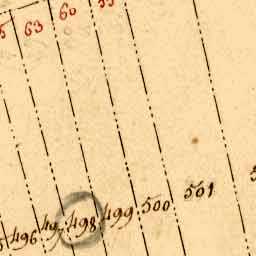 63 60
496 497 498 499 500 501